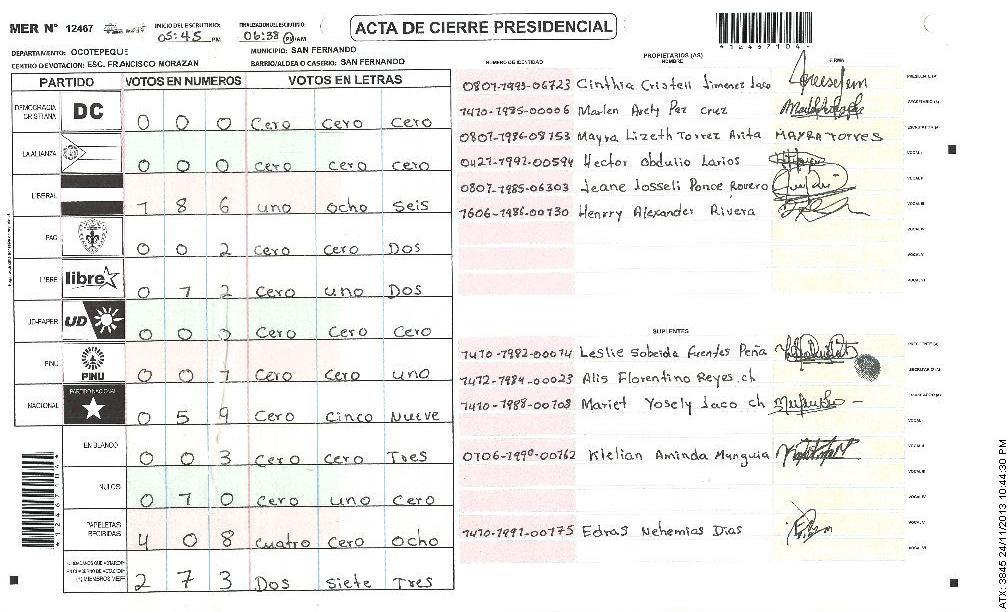 MER N° 12467
INICIO DEL ESCRUTINIO: 05:45 PM
FINALIZACION DEL ESCRUTINIO: 06:38 PM/AM
ACTA DE CIERRE PRESIDENCIAL
*12467104*
DEPARTAMENTO: OCOTEPEQUE
MUNICIPIO: SAN FERNANDO
CENTRO DE VOTACION: ESC. FRANCISCO MORAZAN
BARRIO/ALDEA O CASERIO: SAN FERNANDO
PARTIDO VOTOS EN NUMEROS VOTOS EN LETRAS
DEMOCRACIA CRISTIANA DC 0 0 0 Cero Cero Cero
LA ALIANZA 0 0 0 Cero Cero Cero
LIBERAL 1 8 6 uno ocho Seis
PAC 0 0 2 Cero Cero Dos
LIBRE libre 0 1 2 Cero uno Dos
UD-FAPER UD 0 0 0 Cero Cero Cero
PINU PINU 0 0 1 Cero Cero uno
NACIONAL PARTIDO NACIONAL 0 5 9 Cero Cinco Nueve
EN BLANCO 0 0 3 Cero Cero Tres
NULOS 0 1 0 Cero uno Cero
PAPELETAS RECIBIDAS 4 0 8 Cuatro Cero Ocho
2 7 3 Dos Siete Tres
PROPIETARIOS (AS)
NUMERO DE IDENTIDAD NOMBRE FIRMA
0801-1993-06723 Cinthia Cristell Jimenez Jaco PRESIDENTE (A)
1410-1985-00006 Marlen Arely Paz Cruz SECRETARIO (A)
0801-1986-08153 Mayra Lizeth Torrez Arita MAYRA TORRES ESCRUTADOR (A)
0427-1992-00594 Hector Obdulio Larios VOCAL I
0801-1985-06303 Jeane Josseli Ponce Rovero VOCAL II
1606-1986-00130 Henrry Alexander Rivera VOCAL III
VOCAL IV
VOCAL V
VOCAL VI
SUPLENTES
1410-1982-00014 Leslie Sobeida Fuentes Peña PRESIDENTE (A)
1412-1984-00023 Alis Florentino Reyes.ch SECRETARIO (A)
1410-1988-00108 Mariet Yosely Jaco ch ESCRUTADOR (A)
VOCAL I
0106-1990-00162 Klelian Aminda Munguia VOCAL II
VOCAL III
VOCAL IV
1410-1991-00175 Edras Nehemias Dias VOCAL V
VOCAL VI
ATX: 3845 24/11/2013 10:44:30 PM